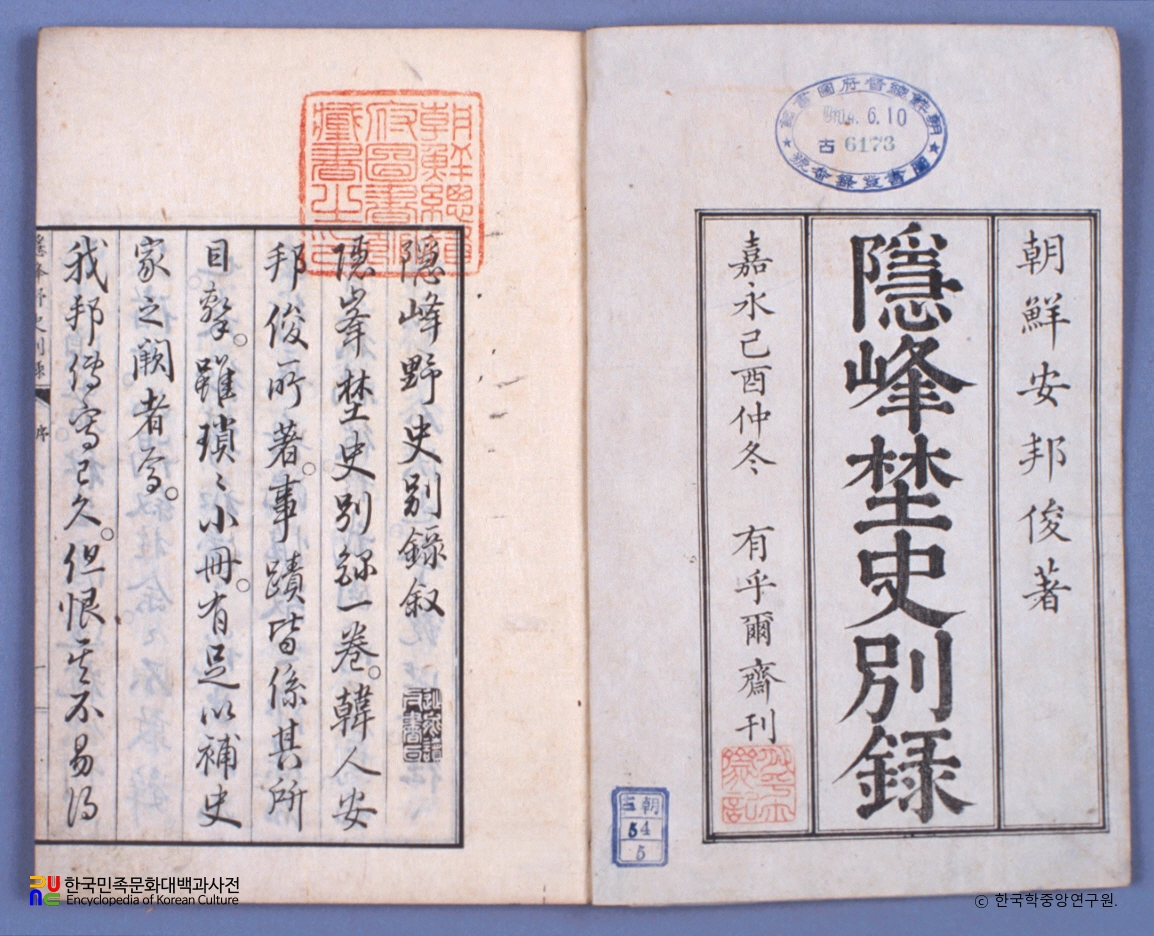 朝鮮安邦俊著
隱峰埜史別録
嘉永己酉仲冬 有乎爾齋刊
朝鮮總督府圖書館
6.10
古 6173
圖書登録番號
朝
54
5
朝鮮總督府圖書館藏書之印
隱峰野史別錄叙
隱峯埜史別録一卷。韓人安
邦俊所著。事蹟皆係其所
目擊。雖瑣々小冊。有足以補史
家之闕者焉。
我邦傳寫已久。但恨其不易得
한국민족문화대백과사전
Encyclopedia of Korean Culture
ⓒ 한국학중앙연구원.